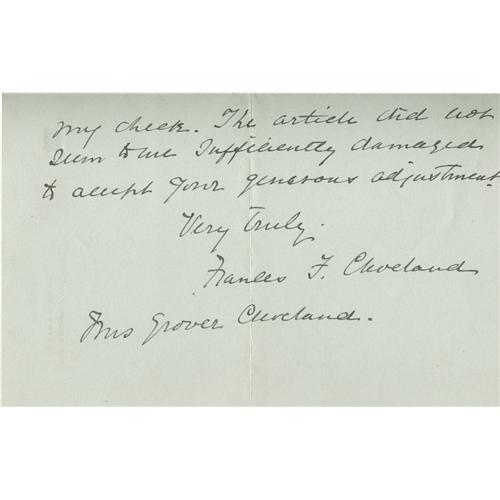 my check. The article did not
seem to me sufficiently damaged
to accept your generous adjustment.
Very truly.
Frances F. Cleveland
Mrs Grover Cleveland.